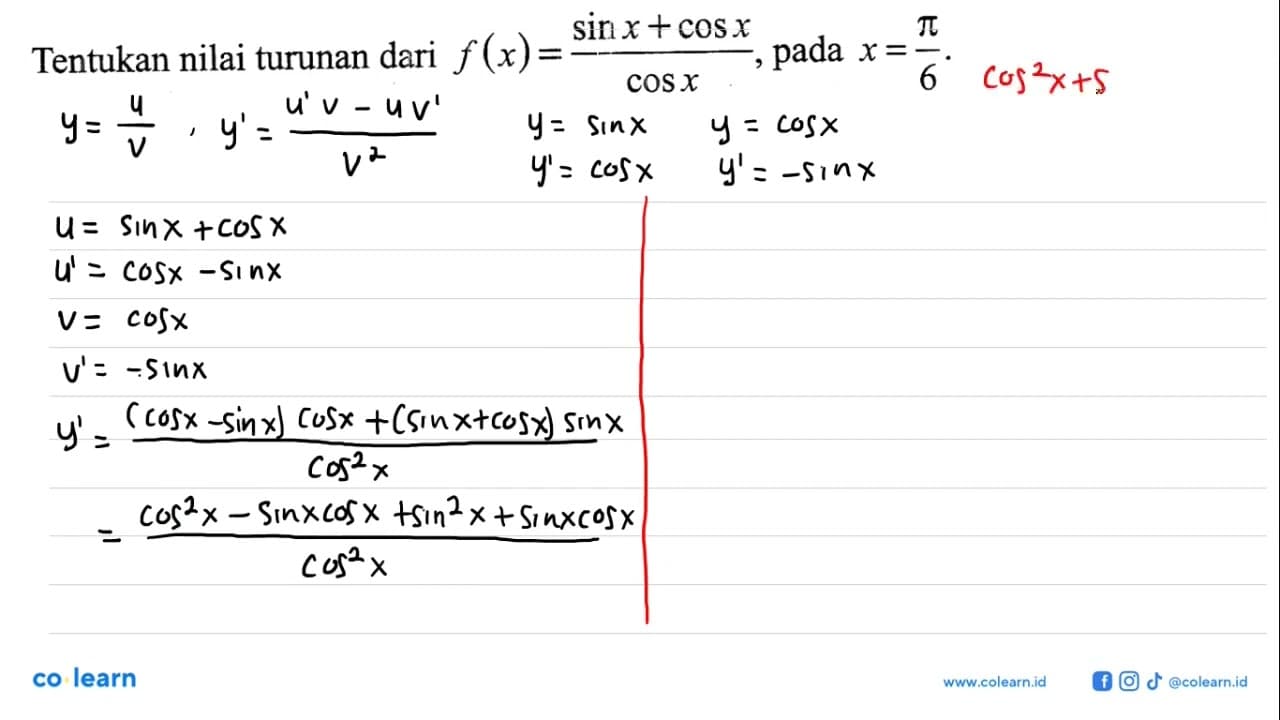 Tentukan nilai turunan dari f(x) = (sin x + cos x)/(cos x), pada x = π/6.
cos²x + s
y = u/v , y' = (u'v - uv')/v²
y = sinx
y' = cosx
y = cosx
y' = -sinx
u = sinx + cosx
u' = cosx - sinx
v = cosx
v' = -sinx
y' = ((cosx - sinx) cosx + (sinx + cosx) sinx)/(cos²x)
= (cos²x - sinxcosx + sin²x + sinxcosx)/(cos²x)
co learn
www.colearn.id
@colearn.id